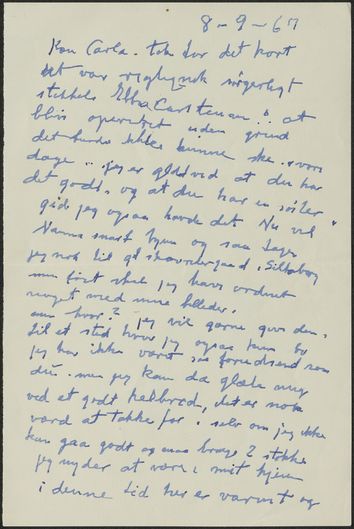 8-9-67
Kære Carla. tak for det kort
det var rigtignok sørgerligt
stakkels Ebba Carstensen .. at
blive opereret uden grund
det burde ikke kunne ske i vore
dage .. jeg er glad ved at du har
det godt, og at du har en
gid jeg ogsaa havde det Nu vil
Nanna snart hjem og saa tager
jeg nok til gl skovridergaard, Silkeborg
men först skal jeg have ordnet
noget med mine billeder.
men hvor? jeg vil gerne give dem,
til et sted hvor jeg ogsaa kan bo
jeg har ikke været saa forudseend som
du. men jeg kan da glæde mig
ved et godt helbred, det er nok
værd at takke for. selv om jeg ikke
kan gaa godt og maa bruge 2 stokke
jeg nyder at være i mit hjem
i denne tid her er varmt og